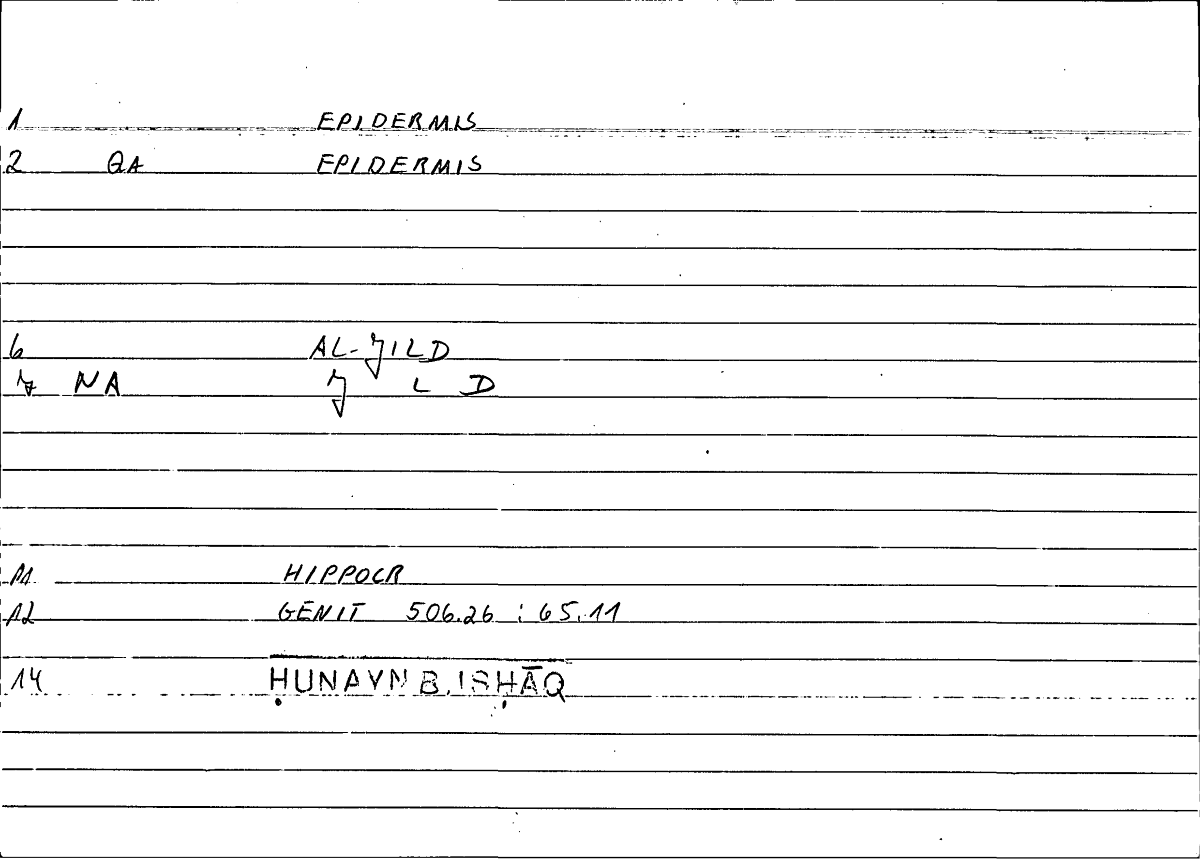 1 EPIDERMIS
2 QA EPIDERMIS
6 AL-ǦILD
7 NA Ǧ L D
11 HIPPOCR
12 GENIT 506.26 : 65.11
14 ḤUNAYN B. ISḤĀQ